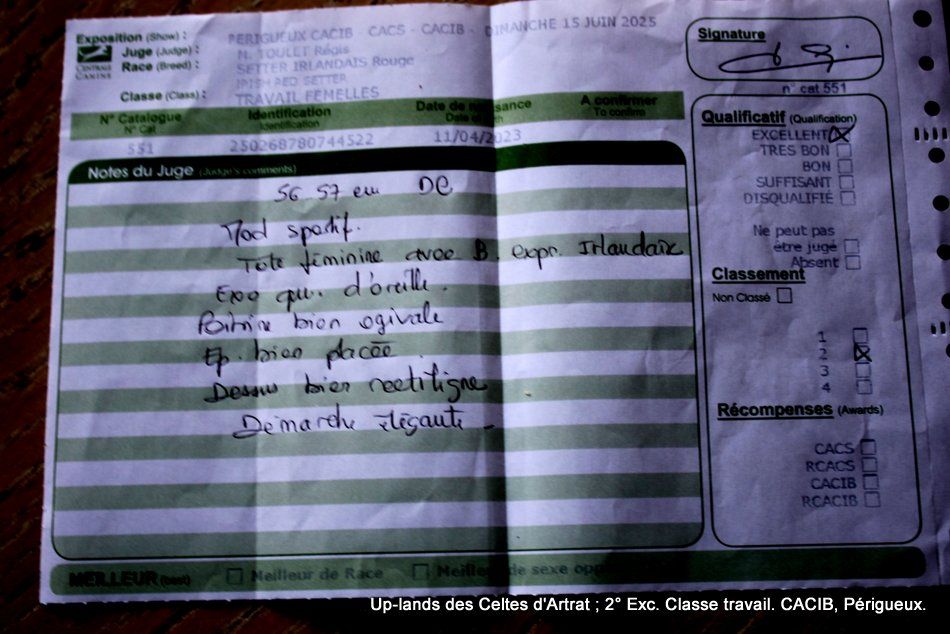 Exposition (Show) : PERIGUEUX CACIB - CACS - CACIB - DIMANCHE 15 JUIN 2025
Juge (Judge) : M. TOULET Régis
Race (Breed) : SETTER IRLANDAIS Rouge
IRISH RED SETTER
CENTRALE CANINE
Classe (Class) : TRAVAIL FEMELLES
N° Catalogue Identification Date de naissance A confirmer
N° Cat Identification Date of birth To confirm
551 250268780744522 11/04/2023
Notes du Juge (Judge's comments)
56 57 cm DC
Mod sportif.
Tête féminine avec B. expr. Irlandaix
d'oreille.
Poitrine bien ogivale
Ep. bien placée.
Dessus bien rectiligne
Démarche élégante -
Signature
n° cat 551
Qualificatif (Qualification)
EXCELLENT
TRES BON
BON
SUFFISANT
DISQUALIFIÉ
Ne peut pas
être jugé
Absent
Classement
Non Classé
1
2
3
4
Récompenses (Awards)
CACS
RCACS
CACIB
RCACIB
MEILLEUR (best) Meilleur de Race Meilleur de sexe opp
Up-lands des Celtes d'Artrat ; 2° Exc. Classe travail. CACIB, Périgueux.